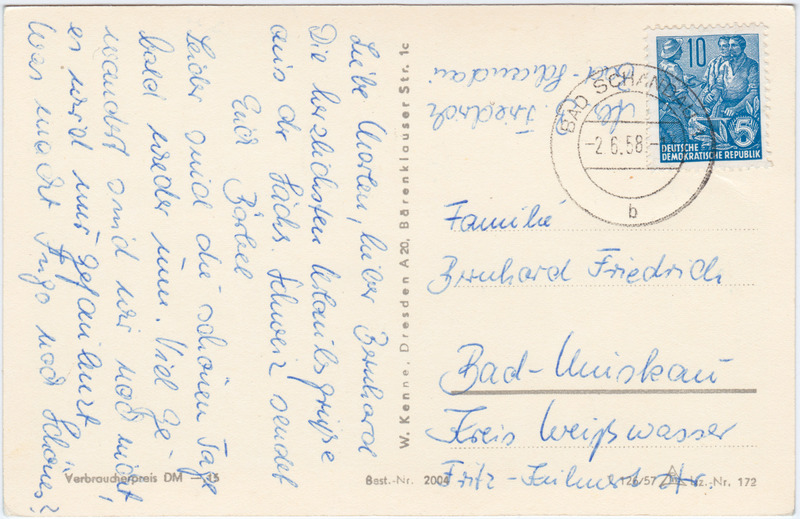 Liebe Marlen, lieber Bernhard
Die herzlichsten Urlaubsgrüße
aus der Sächs. Schweiz sendet
Euch Bärbel
Leider sind die schönen Tage
bald wieder um. Viel ge-
wandert sind wir noch nicht,
es wird nur gefaulenzt!
Was macht Ingo noch Schönes?
W. Kenne, Dresden A 20, Bärenklauser Str. 1c
Friedrich
Bad-Schandau
10
5
DEUTSCHE
DEMOKRATISCHE REPUBLIK
BAD SCHANDAU
-2.6.58.-
b
Familie
Bernhard Friedrich
Bad-Muskau
Kreis Weißwasser
Fritz- str.
Verbraucherpreis DM -,15
Best.-Nr. 2004
126/57
Lz.-Nr. 172